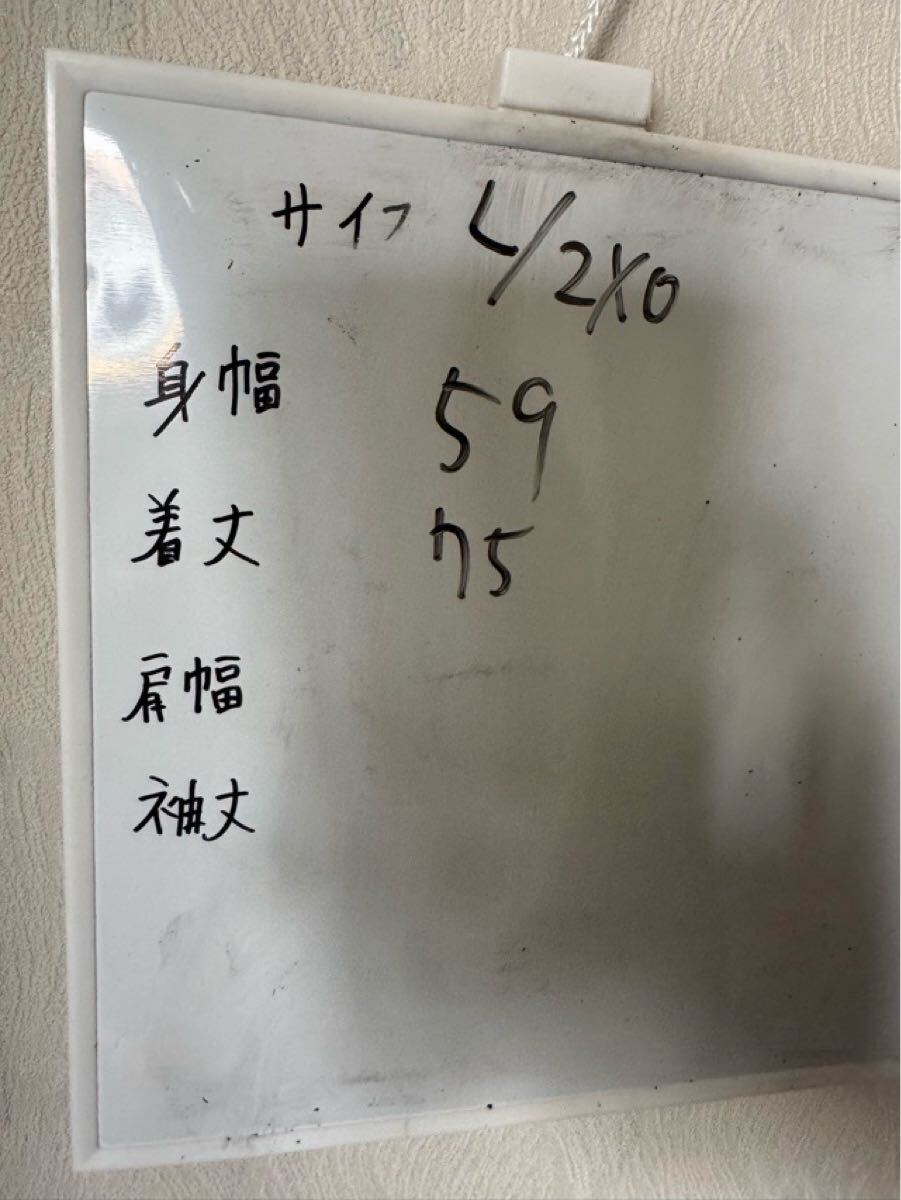 サイフ L/2XO
身幅 59
着丈 75
肩幅
袖丈